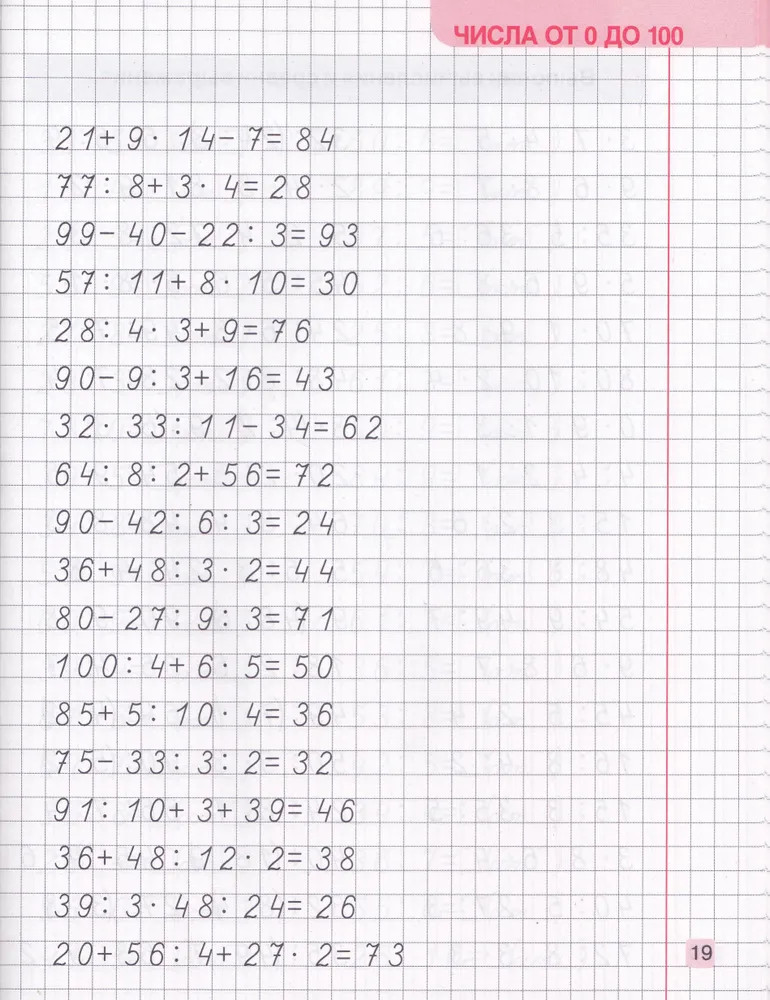 ЧИСЛА ОТ 0 ДО 100
21+ 9· 14- 7= 84
77: 8+ 3· 4= 28
99- 40- 22: 3= 93
57: 11+ 8· 10= 30
28: 4· 3+ 9= 76
90- 9: 3+ 16= 43
32· 33: 11- 34= 62
64: 8: 2+ 56= 72
90- 42: 6: 3= 24
36+ 48: 3· 2= 44
80- 27: 9: 3= 71
100: 4+ 6· 5= 50
85+ 5: 10· 4= 36
75- 33: 3: 2= 32
91: 10+ 3+ 39= 46
36+ 48: 12· 2= 38
39: 3· 48: 24= 26
20+ 56: 4+ 27· 2= 73
19